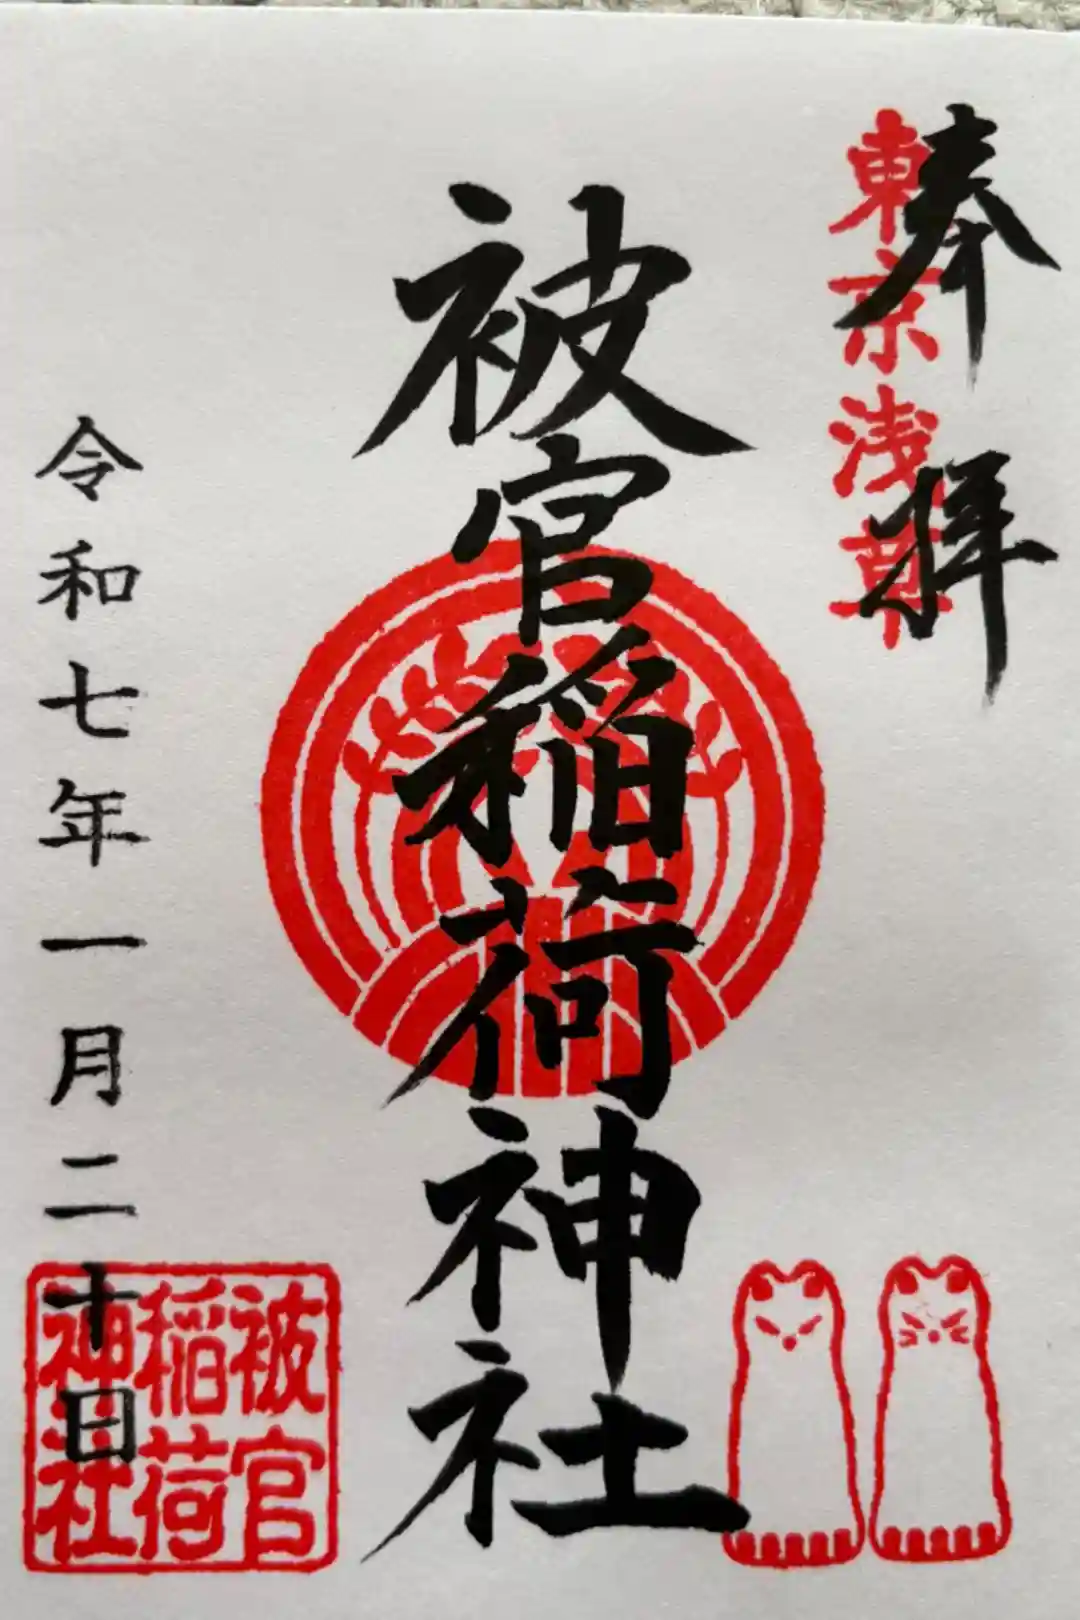 奉拝
東京浅草
被官稲荷神社
令和七年一月二十日
被官
稲荷
神社